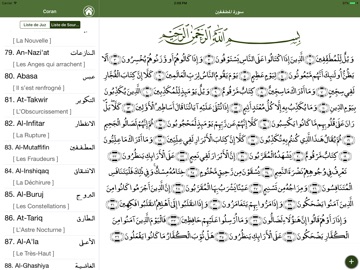 Coran
2:08 PM
Liste de Juz
Liste de Sour...
[ La Nouvelle ]
79. An-Nazi'at النازعات
[ Les Anges qui arrachent ]
80. Abasa عبس
[ Il s'est renfrogné ]
81. At-Takwir التكوير
[ L'Obscurcissement ]
82. Al-Infitar الانفطار
[ La Rupture ]
83. Al-Mutaffifin المطففين
[ Les Fraudeurs ]
84. Al-Inshiqaq الانشقاق
[ La Déchirure ]
85. Al-Buruj البروج
[ Les Constellations ]
86. At-Tariq الطارق
[ L'Astre Nocturne ]
87. Al-A'la الأعلى
[ Le Très-Haut ]
88. Al-Ghashiya الغاشية
سورة المطففين
بسم الله الرحمن الرحيم
وَيْلٌ لِّلْمُطَفِّفِينَ الَّذِينَ إِذَا اكْتَالُوا عَلَى النَّاسِ يَسْتَوْفُونَ وَإِذَا كَالُوهُمْ أَو وَّزَنُوهُمْ يُخْسِرُونَ أَلَا
يَظُنُّ أُولَٰئِكَ أَنَّهُم مَّبْعُوثُونَ لِيَوْمٍ عَظِيمٍ يَوْمَ يَقُومُ النَّاسُ لِرَبِّ الْعَالَمِينَ كَلَّا إِنَّ كِتَابَ الْفُجَّارِ
لَفِي سِجِّينٍ وَمَا أَدْرَاكَ مَا سِجِّينٌ كِتَابٌ مَّرْقُومٌ وَيْلٌ يَوْمَئِذٍ لِّلْمُكَذِّبِينَ الَّذِينَ يُكَذِّبُونَ
بِيَوْمِ الدِّينِ وَمَا يُكَذِّبُ بِهِ إِلَّا كُلُّ مُعْتَدٍ أَثِيمٍ إِذَا تُتْلَىٰ عَلَيْهِ آيَاتُنَا قَالَ أَسَاطِيرُ الْأَوَّلِينَ كَلَّا بَلْ
رَانَ عَلَىٰ قُلُوبِهِم مَّا كَانُوا يَكْسِبُونَ كَلَّا إِنَّهُمْ عَن رَّبِّهِمْ يَوْمَئِذٍ لَّمَحْجُوبُونَ ثُمَّ إِنَّهُمْ لَصَالُو الْجَحِيمِ
ثُمَّ يُقَالُ هَٰذَا الَّذِي كُنتُم بِهِ تُكَذِّبُونَ كَلَّا إِنَّ كِتَابَ الْأَبْرَارِ لَفِي عِلِّيِّينَ وَمَا أَدْرَاكَ مَا عِلِّيُّونَ
كِتَابٌ مَّرْقُومٌ يَشْهَدُهُ الْمُقَرَّبُونَ إِنَّ الْأَبْرَارَ لَفِي نَعِيمٍ عَلَى الْأَرَائِكِ يَنظُرُونَ
تَعْرِفُ فِي وُجُوهِهِمْ نَضْرَةَ النَّعِيمِ يُسْقَوْنَ مِن رَّحِيقٍ مَّخْتُومٍ خِتَامُهُ مِسْكٌ وَفِي ذَٰلِكَ فَلْيَتَنَافَسِ
الْمُتَنَافِسُونَ وَمِزَاجُهُ مِن تَسْنِيمٍ عَيْنًا يَشْرَبُ بِهَا الْمُقَرَّبُونَ إِنَّ الَّذِينَ أَجْرَمُوا كَانُوا مِنَ
الَّذِينَ آمَنُوا يَضْحَكُونَ وَإِذَا مَرُّوا بِهِمْ يَتَغَامَزُونَ وَإِذَا انقَلَبُوا إِلَىٰ أَهْلِهِمُ انقَلَبُوا فَكِهِينَ
وَإِذَا رَأَوْهُمْ قَالُوا إِنَّ هَٰؤُلَاءِ لَضَالُّونَ وَمَا أُرْسِلُوا عَلَيْهِمْ حَافِظِينَ فَالْيَوْمَ الَّذِينَ آمَنُوا مِنَ
الْكُفَّارِ يَضْحَكُونَ عَلَى الْأَرَائِكِ يَنظُرُونَ هَلْ ثُوِّبَ الْكُفَّارُ مَا كَانُوا يَفْعَلُونَ